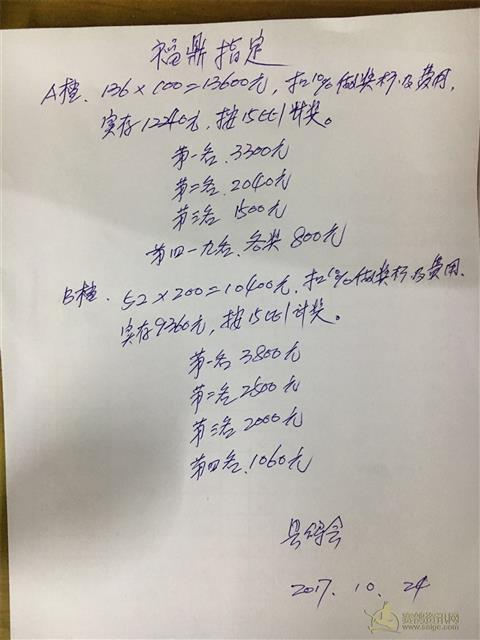 福鼎指定
A档、136×100=13600元,扣10%做奖杯及费用,
实存12240元,按15比1计奖。
第一名 3300元
第二名、2040元
第三名 1500元
第四一九名、各奖800元
B档、52×200=10400元、扣10%做奖杯及费用、
实存9360元,按15比1计奖。
第一名 3800元
第二名 2500元
第三名 2000元
第四名、1060元
县鸽会
2017.10.24
赛鸽资讯网
www.saige.com